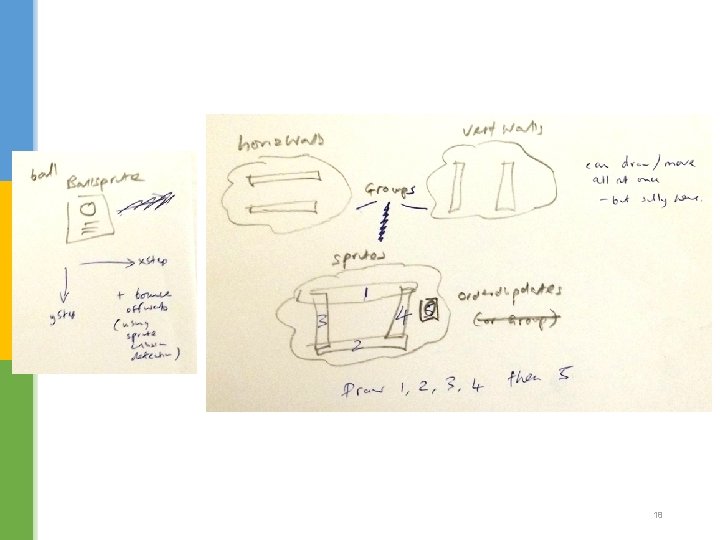 ball BallSprite
xstep
ystep
+ bounce
off walls
(using
sprite
collision
detection)
horizwalls
vertwalls
can draw/move
all at once
- but silly here.
Groups
sprites
orderedupdates
(or Group)
1
2
3
4
Draw 1, 2, 3, 4 then 5
18